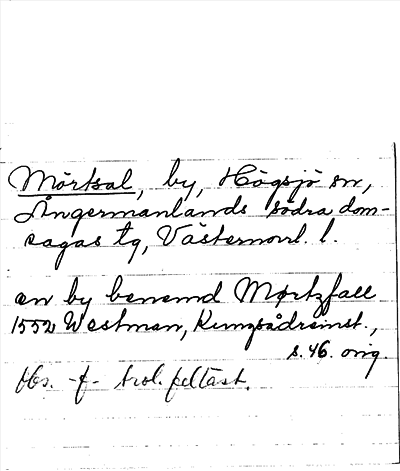 Mörtsal, by, Högsjö sn,
Ångermanlands södra dom-
sagas tg, Västernorrl. l.
en by benemd Mørtzfall
1552 Westman, Kungsådreinst.,
s. 46. orig.
Obs. -f- trol. feltäst.